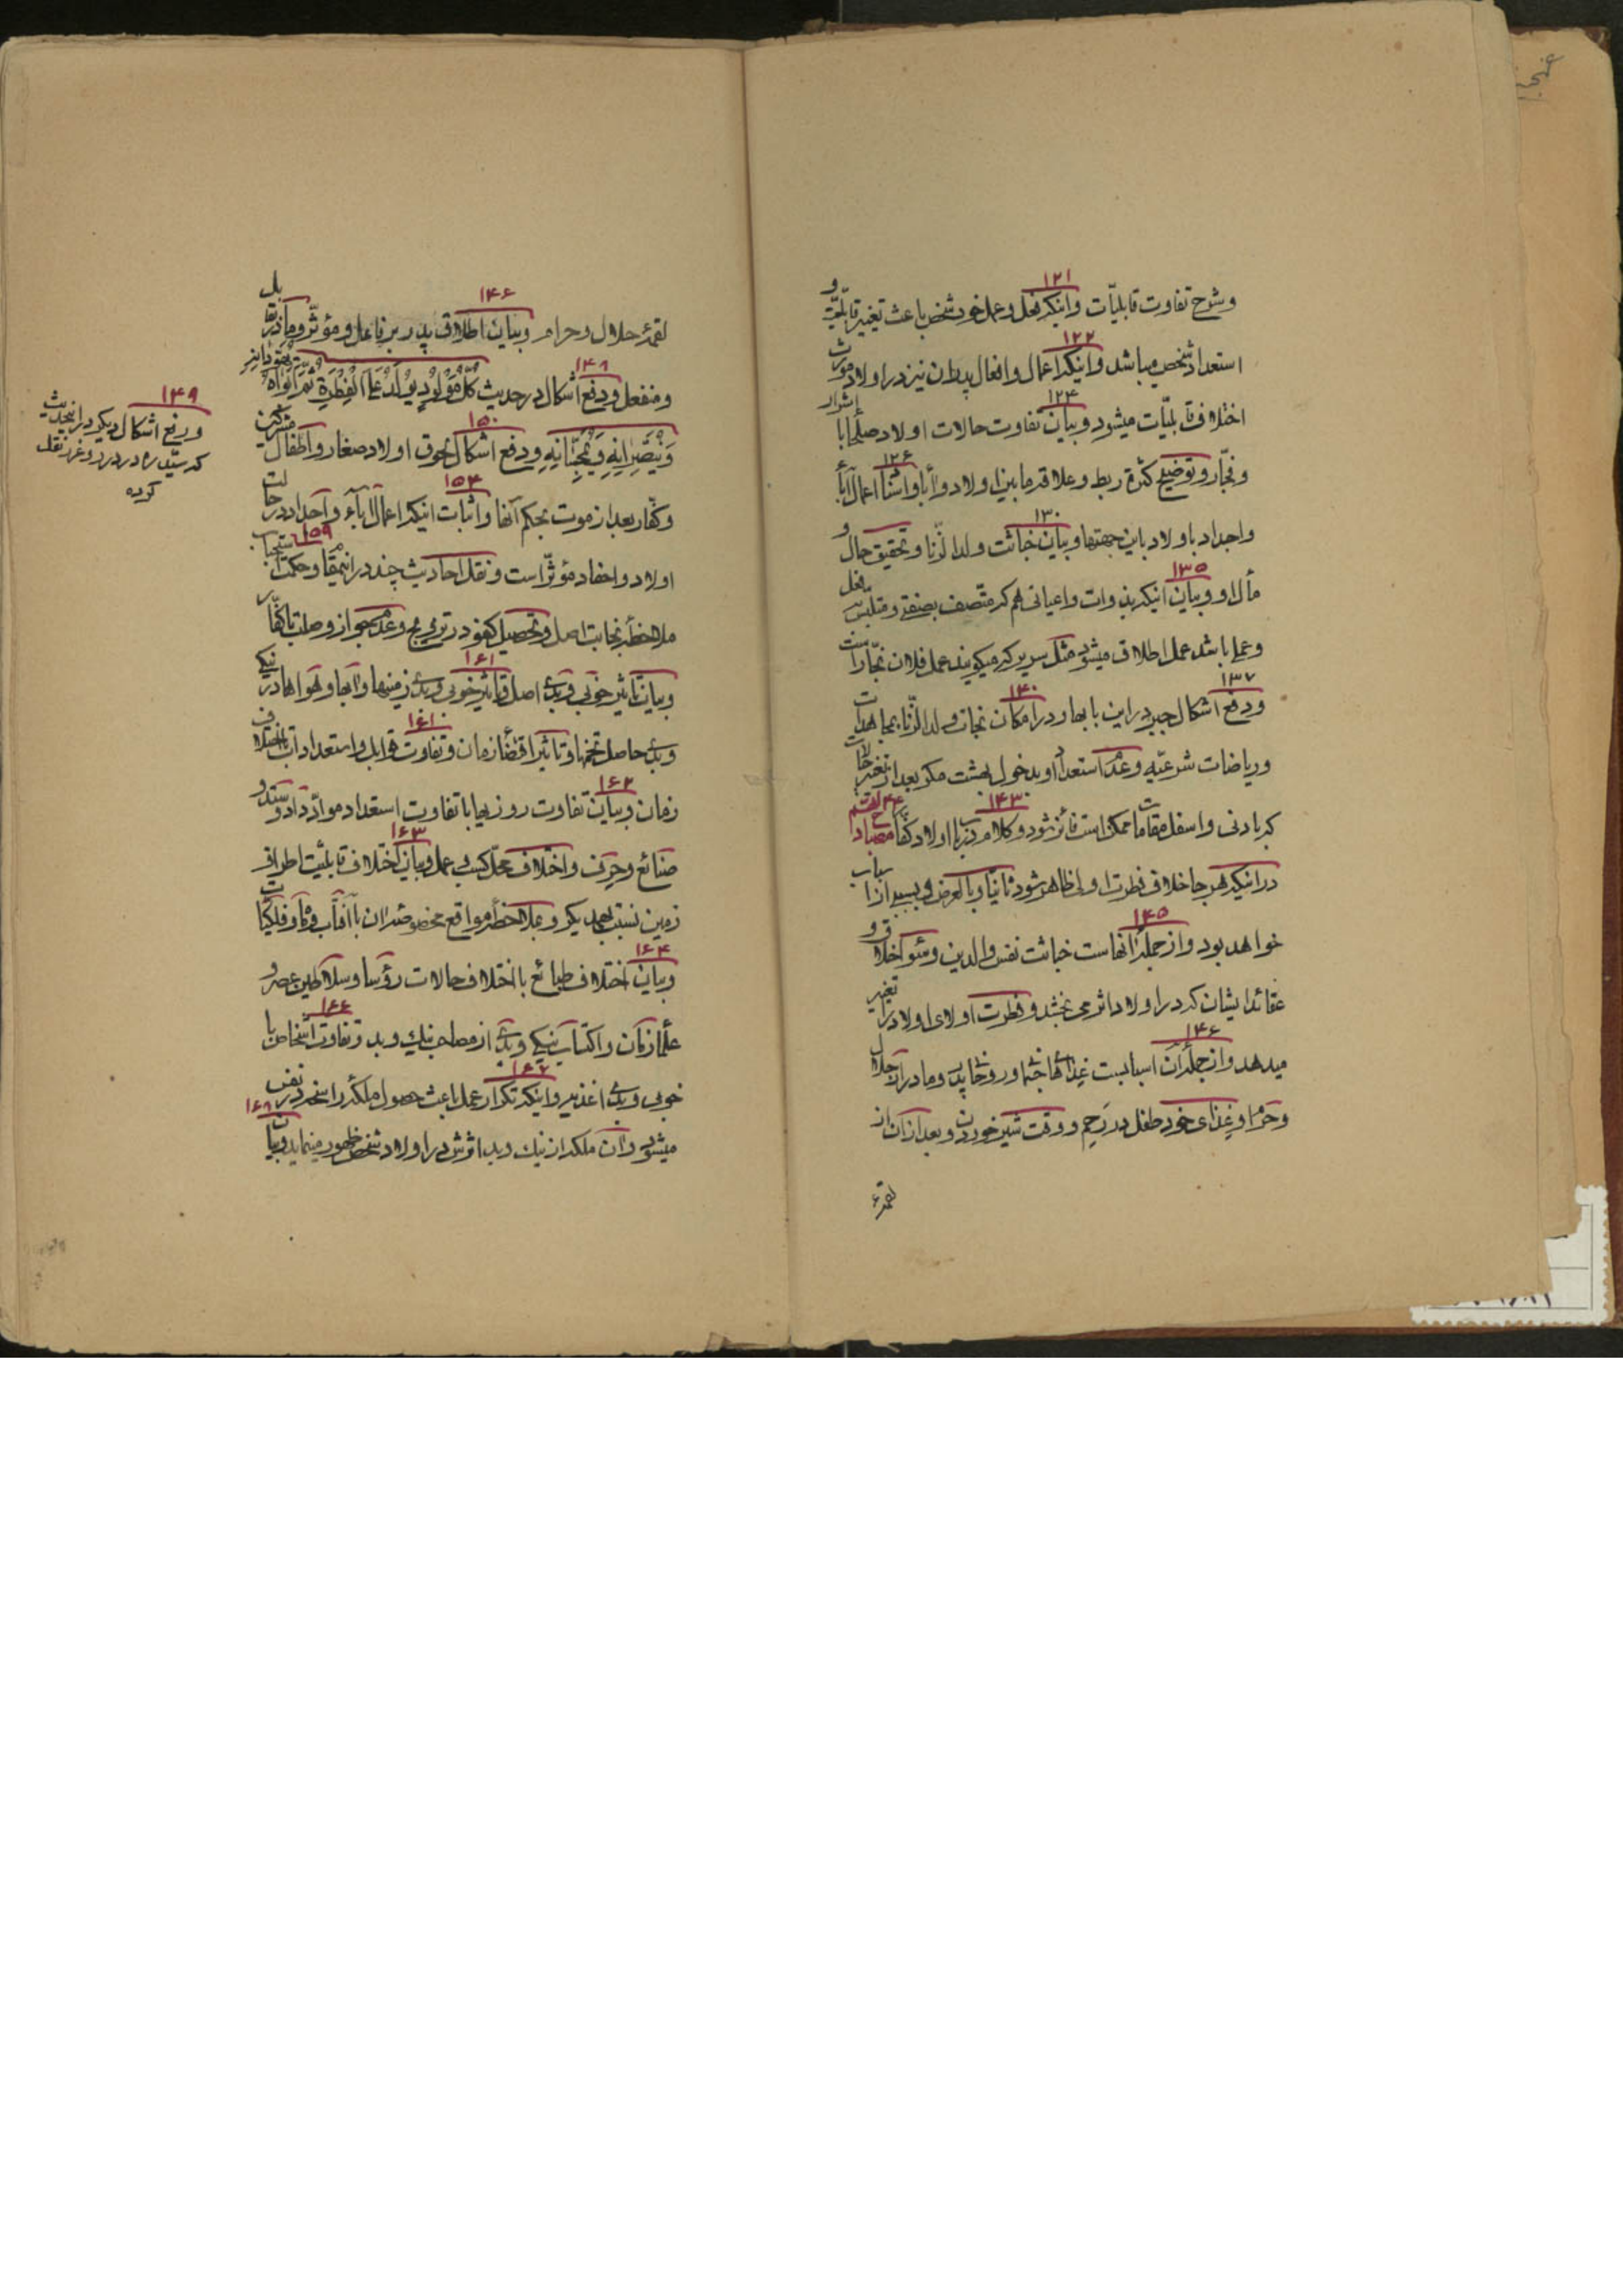 ۱۲۱
وشرح تفاوت قابلیّات واینکه فعل وعمل خود شخص باعث تغییر قابلیّة و
۱۲۲
استعداد شخص میباشد واینکه اعمال وافعال پدران نیز در اولاد مورث
۱۲۴
اختلاف قابلیّات میشود وبیان تفاوت حالات اولاد صلحا با اشرار
۱۲۶
وفجّار وتوضیح کثرة ربط وعلاقه مابین اولاد وآبا واثبات اعمال آباء
۱۳۰
واجداد باولاد باین جهتها وبیان خباثت ولد الزّنا وتحقیق حال و
۱۳۵
مآل او وبیان اینکه بذوات واعیانی هم که متّصف بصفتی ومتلبّس بفعل
وعملی باشد عمل اطلاق میشود مثل سریر که میکویند عمل فلان نجّار است
۱۳۷
ودفع اشکال جبر در این بابها و در امکان نجات ولد الزّنا بمجاهدات
۱۴۰
وریاضات شرعیّه وعدم استعداد او بدخول بهشت مکر بعد از تغییر حالات
۱۴۳
که بادنی واسفل مقامات ممکن است فائز شود وکلام در باب اولاد کفّار
در اینکه هر جا خلاف فطرت اولی ظاهر شود ثانیاً وبالعرض وبسبب از اسباب
۱۴۵
خواهد بود واز جمله آنهاست خباثت نفس والدین وسوء اخلاق و
عقائد ایشان که در اولاد اثر می بخشد وفطرت اولای اولاد را تغییر
۱۴۶
میدهد واز جمله آن اسبابست غذاهای جسمانی وروحانی پدر ومادر از حلال
وحرام وغذای خود طفل در رَحِم ووقت شیر خوردن وبعد از آن از
لقمهء
۱۴۶
لقمهء حلال وحرام وبیان اطلاق پدر بر فاعل ومؤثّر ومادر بر قابل
۱۴۸
ومنفعل ودفع اشکال در حدیث کُلُّ مَوْلُودٍ یُولَدُ عَلَی الْفِطْرَةِ ثُمَّ اَبَوَاهُ یُهَوِّدَانِهِ
۱۵۰
وَیُنَصِّرَانِهِ وَیُمَجِّسَانِهِ ودفع اشکال لحوق اولاد صغار واطفال مشرکین
۱۵۴
وکفّار بعد از موت بحکم آنها واثبات اینکه اعمال آباء واجداد در حالت
۱۵۹
اولاد واحفاد مؤثّر است ونقل احادیث چند در اینمقام وحکمت استحباب
ملاحظه نجابت اصل وتحصیل کفو در تزویج وعدم جواز وصلت با کفّار
۱۶۱
وبیان تاثیر خوبی وبدی اصل وتاثیر خوبی وبدی زمینها وآبها وهواها در نیکی
۱۶۱
وبدی حاصل تخمها وتاثیر اقتضاء زمان وتفاوت قوابل واستعدادات باختلاف
۱۶۲
زمان وبیان تفاوت روزیها با تفاوت استعداد موادّ داد وستد و
۱۶۳
صنائع وحِرَف واختلاف محلّ کسب وعمل وبیان اختلاف قابلیّت اطراف
زمین نسبت بهمدیکر وملاحظه مواقع مخصوصه ان با آفتاب وماه وفلکیّات
۱۶۴
وبیان اختلاف طبائع باختلاف حالات رؤسا وسلاطین عصر و
۱۶۶
علما زمان واکتساب نیکی وبدی از مصاحب نیك وبد وتفاوت اشخاص با
۱۶۷
خوبی وبدی اغذیه واینکه تکرار عمل باعث حصول ملکه راسخه در نفس
۱۶۸
میشود وآن ملکه از نیك وبد اثرش در اولاد شخص ظهور مینماید وبیان
۱۴۹
ورفع اشکال دیکر در اینحدیث
که سیّد ره در درر وغرر نقل
کرده